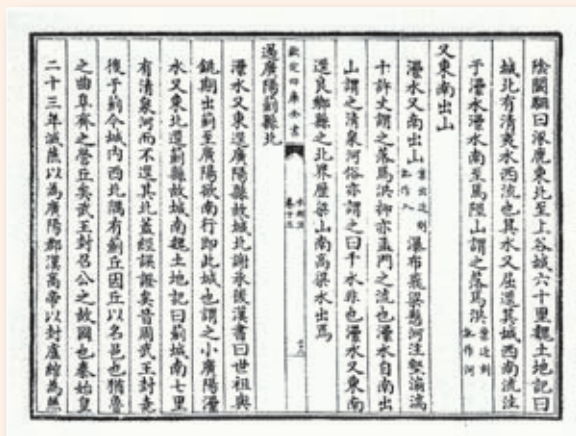 陰闞駰曰涿鹿東北至上谷城六十里魏土地記曰
城北有清夷水西流也其水又屈逕其城西南流注
于㶟水㶟水南至馬陘山謂之落馬洪案近刻訛作河
又東南出山
㶟水又南出山案出近刻訛作入瀑布飛梁懸河注壑湍湍
十許丈謂之落馬洪抑亦孟門之流也㶟水自南出
山謂之清泉河俗亦謂之曰千水非也㶟水又東南
逕良鄉縣之北界歷梁山南高梁水出焉
欽定四庫全書 水經注 卷十三
過廣陽薊縣北
㶟水又東逕廣陽縣故城北謝承後漢書曰世祖與
銚期出薊至廣陽欲南行即此城也謂之小廣陽㶟
水又東北逕薊縣故城南魏土地記曰薊城南七里
有清泉河而不逕其北蓋經誤證矣昔周武王封堯
後于薊今城內西北隅有薊丘因丘以名邑也猶魯
之曲阜齊之營丘矣武王封召公之故國也秦始皇
二十三年滅燕以為廣陽郡漢高帝以封盧綰為燕